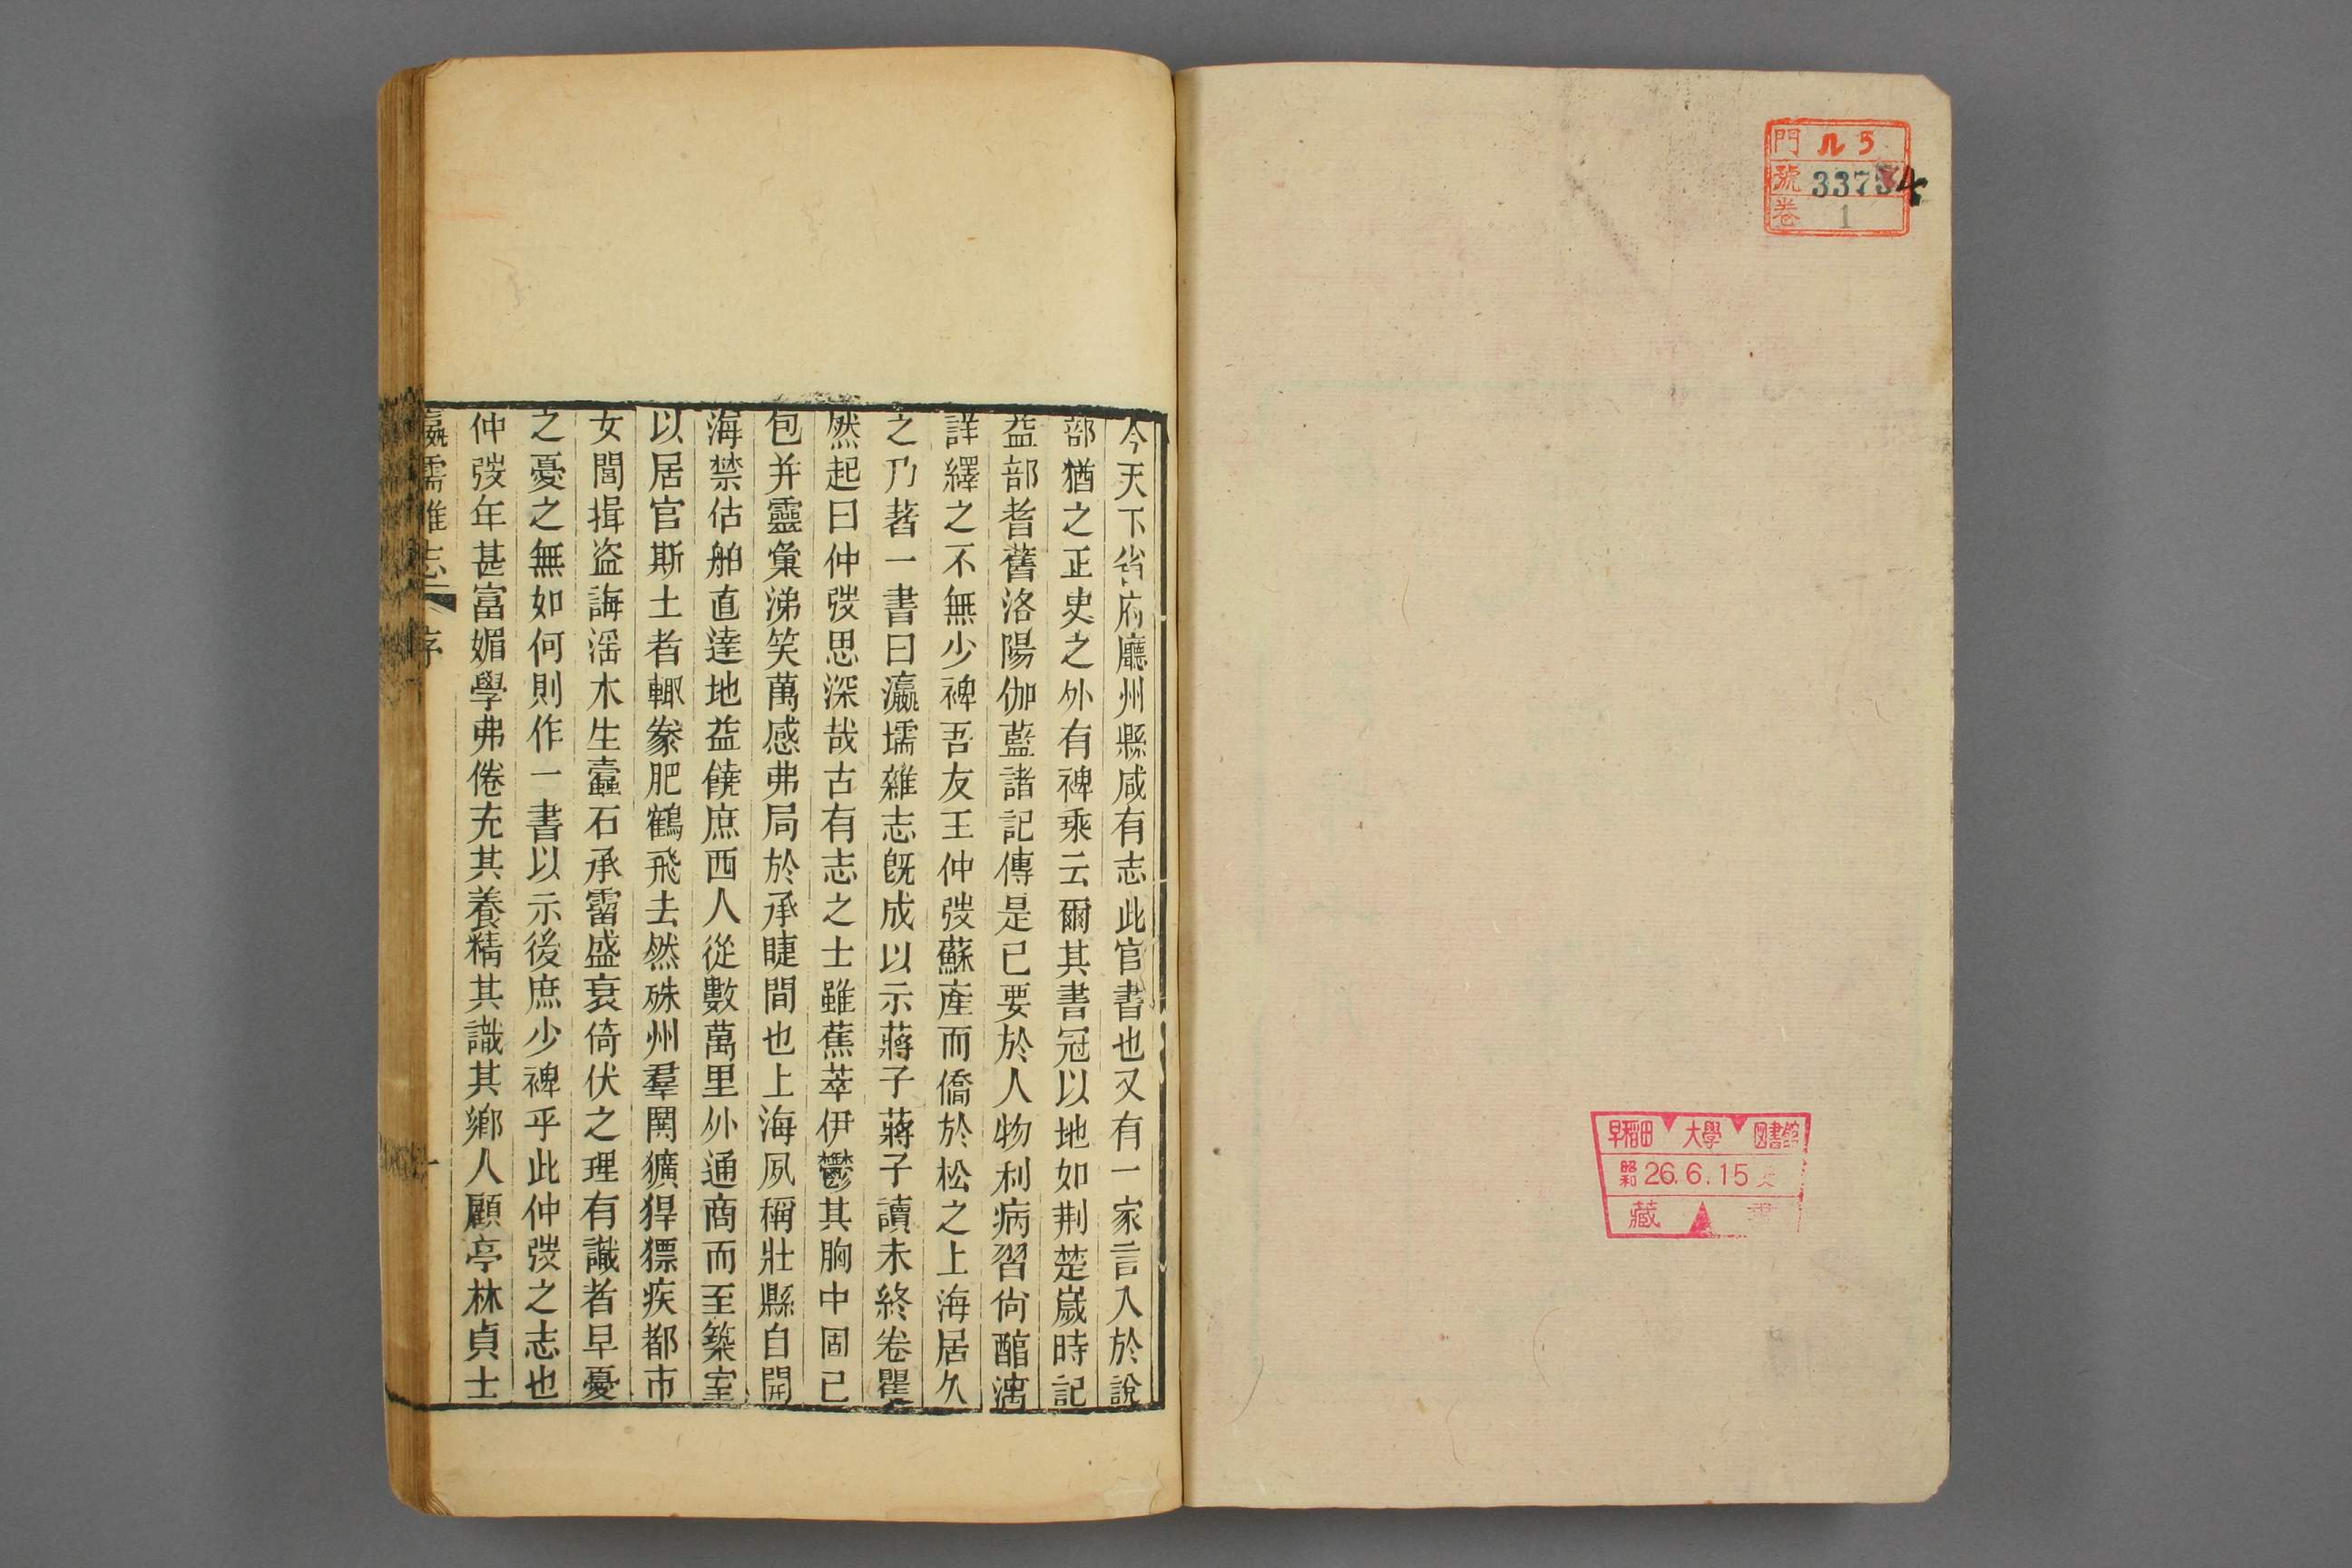 門 ル5
號 33754
卷 1
早稻田 大學 圖書館
昭和 26.6.15
藏
今天下省府廳州縣咸有志此官書也又有一家言入於說
部猶之正史之外有裨乘云爾其書冠以地如荆楚嵗時記
益部耆舊洛陽伽藍諸記傳是已要於人物利病習尙醕漓
詳繹之不無少裨吾友王仲弢蘇產而僑於松之上海居久
之乃著一書曰瀛壖雜志旣成以示蔣子蔣子讀未終卷瞿
然起曰仲弢思深哉古有志之士雖蕉萃伊鬱其胸中固已
包并靈彙涕笑萬感弗局於承睫間也上海夙稱壯縣自開
海禁估舶直達地益饒庶西人從數萬里外通商而至築室
以居官斯土者輙豢肥鶴飛去然硃州羣閧獷猂獷疾都市
女閭揖盜誨淫木生蠧石承霤盛衰倚伏之理有識者早憂
之憂之無如何則作一書以示後庶少裨乎此仲弢之志也
仲弢年甚富媚學弗倦充其養精其識其鄉人顧亭林貞士
瀛壖雜志 序 一